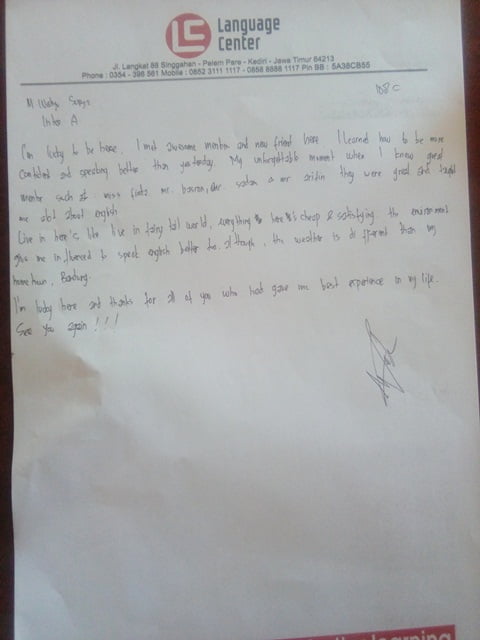 LC Language
Center
Jl. Langkat 88 Singgahan - Palem Pare - Kediri - Jawa Timur 64213
Phone : 0354 - 396 561 Mobile : 0852 3111 1117 - 0856 8888 1117 Pin BB : 5A38CB55
108 C
M Wahyu Surya
Inter A
I'm lucky to be here. I met awesome mentor and new friend here I learned how to be more
confident and speaking better than yesterday. My unforgettable moment when I know great
mentor such as miss mr. they were great and taught
me alot about english
Live in here's like live in fairy tail world, everything here's cheap & satisfying. the environment
give me influenced to speak english better too. although, the weather is different than my
hometown, Bandung.
I'm lucky here and thanks for all of you who had gave me best experience in my life.
See you again !!!
learning